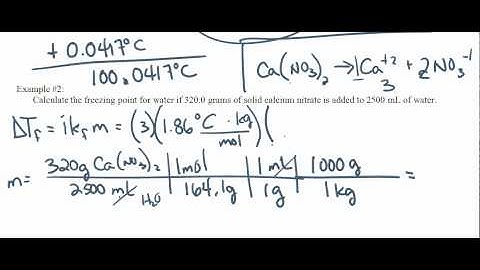 + 0.0417°C
100.0417°C
Ca(NO₃)₂ → 1Ca⁺² + 2NO₃⁻¹
3
Example #2:
Calculate the freezing point for water if 320.0 grams of solid calcium nitrate is added to 2500 mL of water.
ΔT_f = i k_f m = (3)(1.86°C · kg/mol)(
m = 320g Ca(NO₃)₂ | 1mol | 1 mL | 1000 g =
2500 mL H₂O | 164.1g | 1g | 1 kg